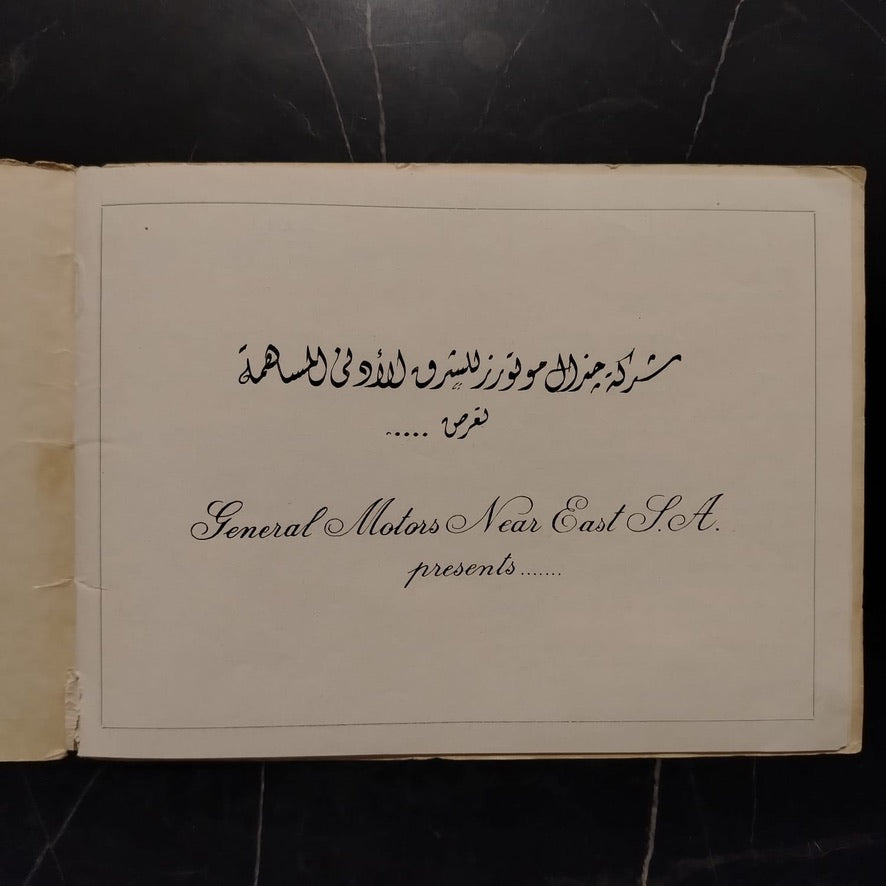 شركة جنرال موتورز للشرق الأدنى المساهمة
تعرض .....
General Motors Near East S.A.
presents.......